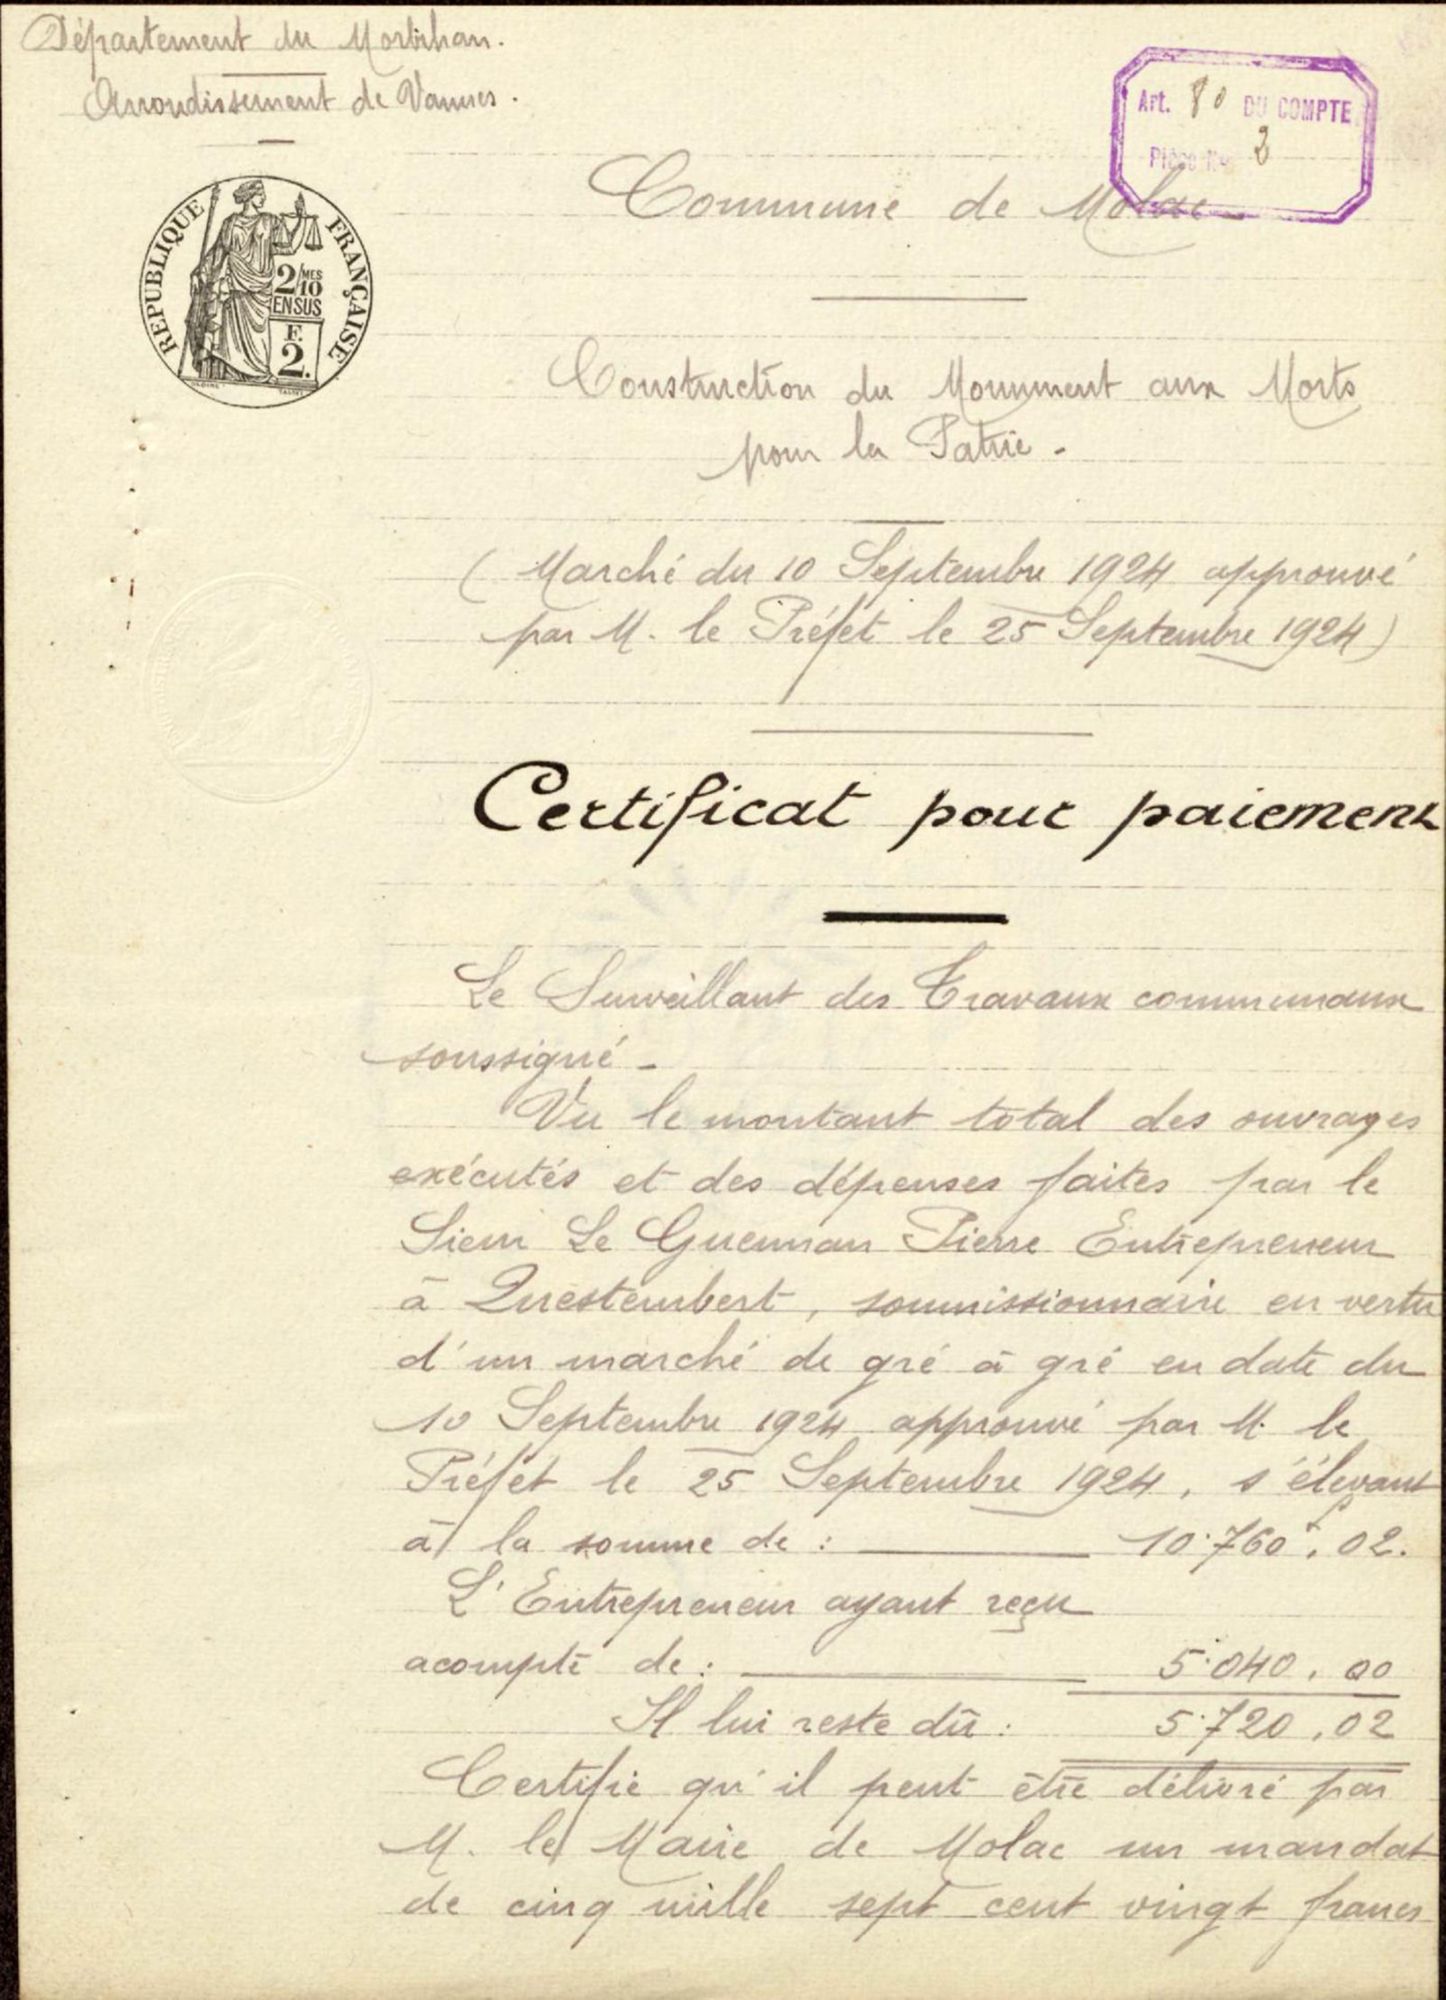 Département du Morbihan.
Arrondissement de Vannes.
Art. 80 DU COMPTE
Pièce No 2
REPUBLIQUE FRANÇAISE
2/10 MES
EN SUS
F.
2.
Commune de Molac
Construction du Monument aux Morts
pour la Patrie -
( Marché du 10 Septembre 1924 approuvé
par M. le Préfet le 25 Septembre 1924 )
Certificat pour paiement
Le Surveillant des Travaux communaux
soussigné -
Vu le montant total des ouvrages
exécutés et des dépenses faites par le
Sieur Le Guennan Pierre Entrepreneur
à Questembert, soumissionnaire en vertu
d'un marché de gré à gré en date du
10 Septembre 1924 approuvé par M. le
Préfet le 25 Septembre 1924, s'élevant
à la somme de : 10.760f,02.
L'Entrepreneur ayant reçu
acompte de : 5.040,00
Il lui reste dû : 5.720,02
Certifie qu'il peut être délivré par
M. le Maire de Molac un mandat
de cinq mille sept cent vingt francs